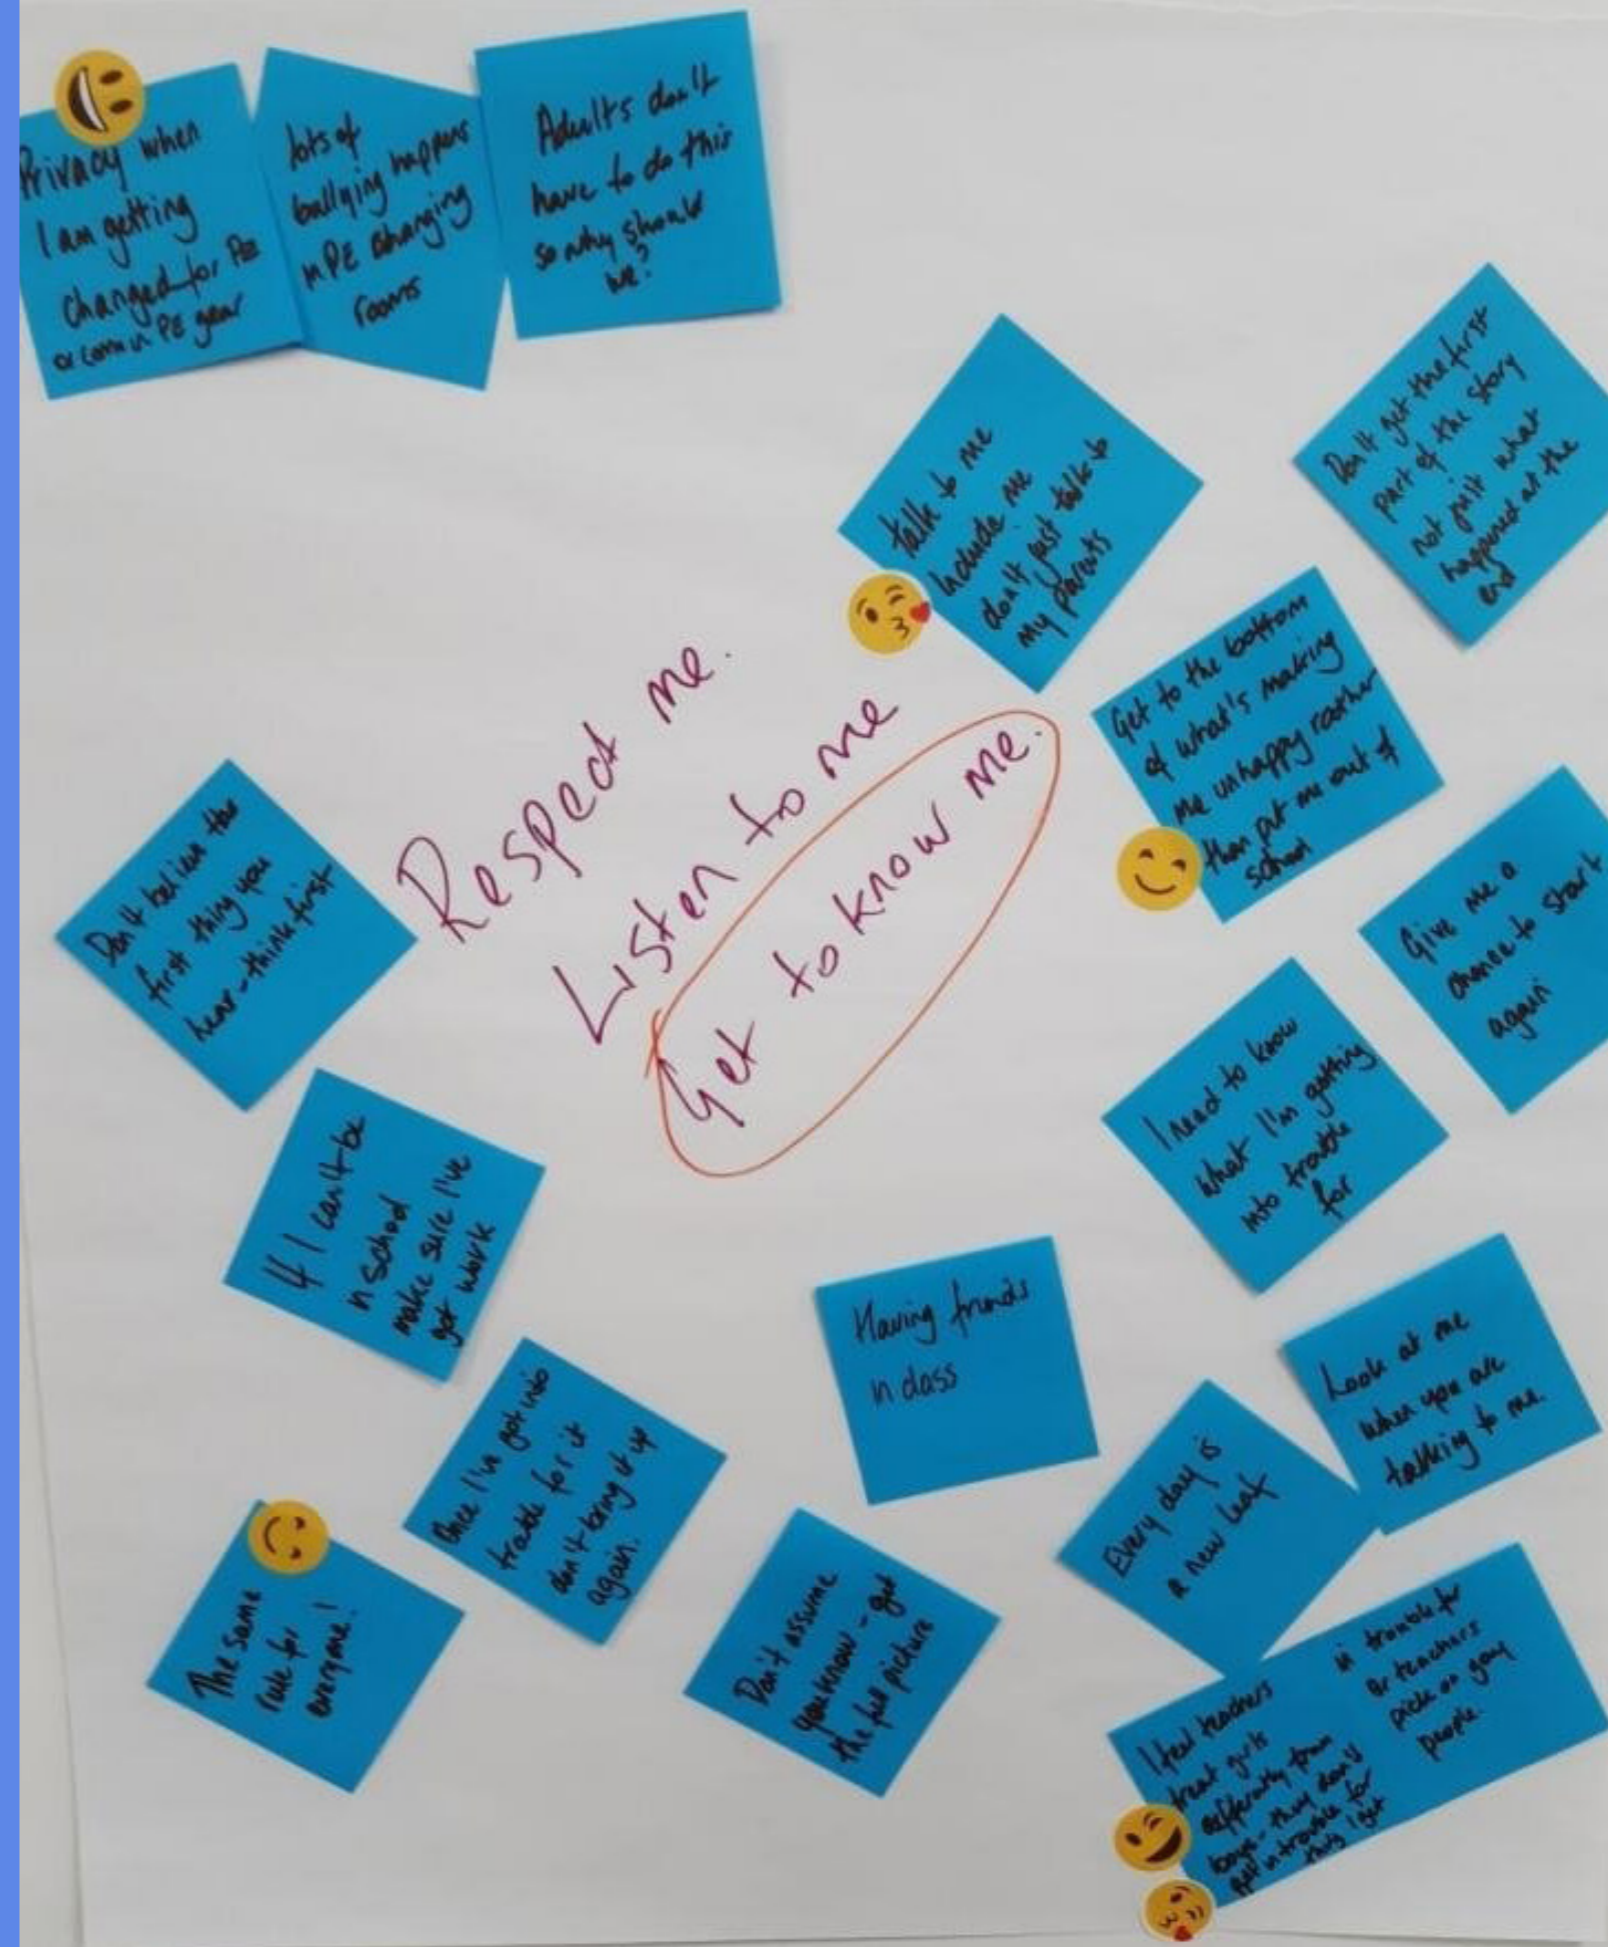 Privacy when
I am getting
changed for PE
or come in PE gear
lots of
bullying happens
in PE changing
rooms
Adults don't
have to do this
so why should
we?
talk to me
include me
don't just talk to
my parents
Don't get the first
part of the story
not just what
happened at the
end
Get to the bottom
of what's making
me unhappy rather
than put me out of
school
Respect me.
Listen to me
Get to know me.
Don't believe the
first thing you
hear - think first
Give me a
chance to start
again
I need to know
what I'm getting
into trouble
for
If I can't be
in school
make sure I've
got work
Having friends
in class
Look at me
when you are
talking to me.
Once I've got into
trouble for it
don't bring it up
again.
Every day is
a new leaf
The same
rule for
everyone!
Don't assume
you know - get
the full picture
I feel teachers
treat girls
differently from
boys - they don't
get in trouble for
things I get
in trouble for
or teachers
pick on gay
people.